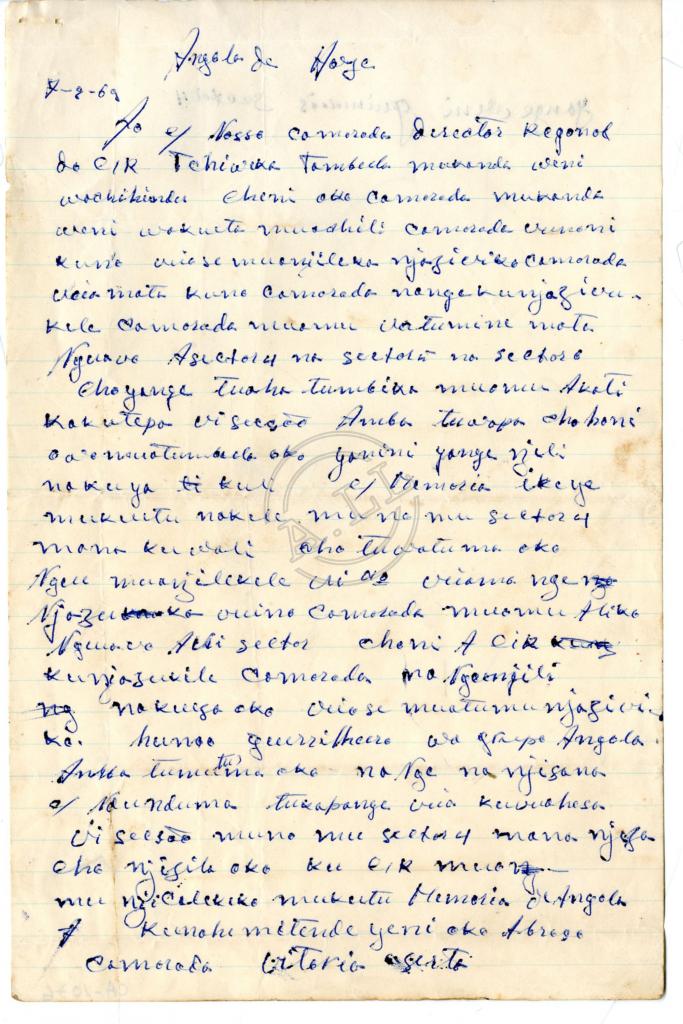 Angola de Hoye
7-2-69
Ao c/ Nosso camarada director Regonal
do CIR Tchiweka Tambula mukanda weni
wachihinda cheni oko camarada mukanda
weni wakweta muachili camarada vunoni
kuno viose muanjileka njazivika camarada
veia mata kuno camarada nange kunjazivu-
kele camarada muomu vatumine mata
Nguavo Asector4 na sectora na sectoro
chayange tuaha tumbika muomu Akati
kakutepa viseccão Amba tuwapa chahoni
oko yanini yange njili
nakuya kuli c/ Memoria ikeye
mukuetu nakele muno mu sector4
mana kuwali cha tuvatuma oko
Ngeu muanjilekele viao viama nge
vuino camarada muomu Alika
Nguavo Ali sector choni A CIR
kunjazukile camarada na Nganjili
nakuya oko viose muatumu njazivi-
ka. hunoo guerrilheiro wa grupo Angola
Amba tumutuma oko na Nge na njisana
c/ Naunduma tukapange via kuvuahesa
vi seccão muno mu sector4 mana njesa
cha njizila oko ku CIR
mu njicelekeko mukuetu Memoria de Angola
A Kunahumitende yeni oko Abraso
camarada Vitoria aserta
CA-1076